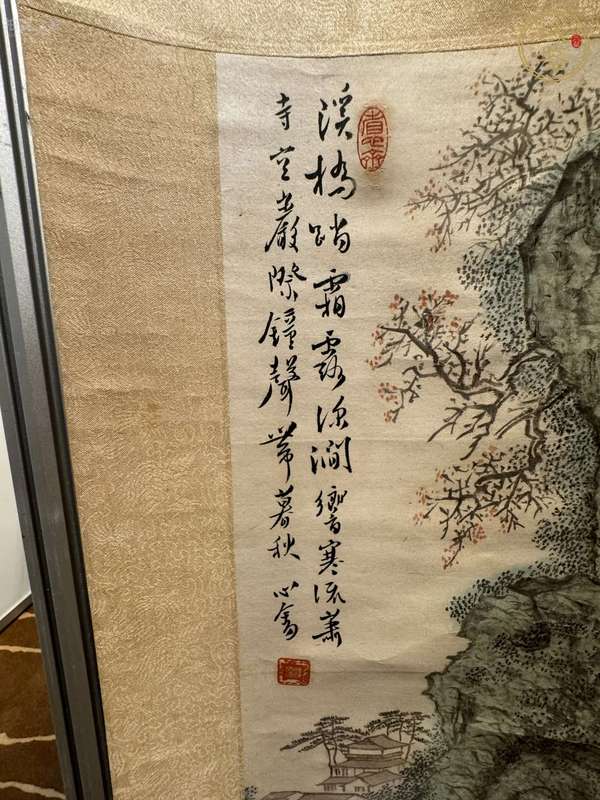 溪橋踏霜露深澗響寒流蕭
寺空巖際鐘聲帶暮秋 心畬